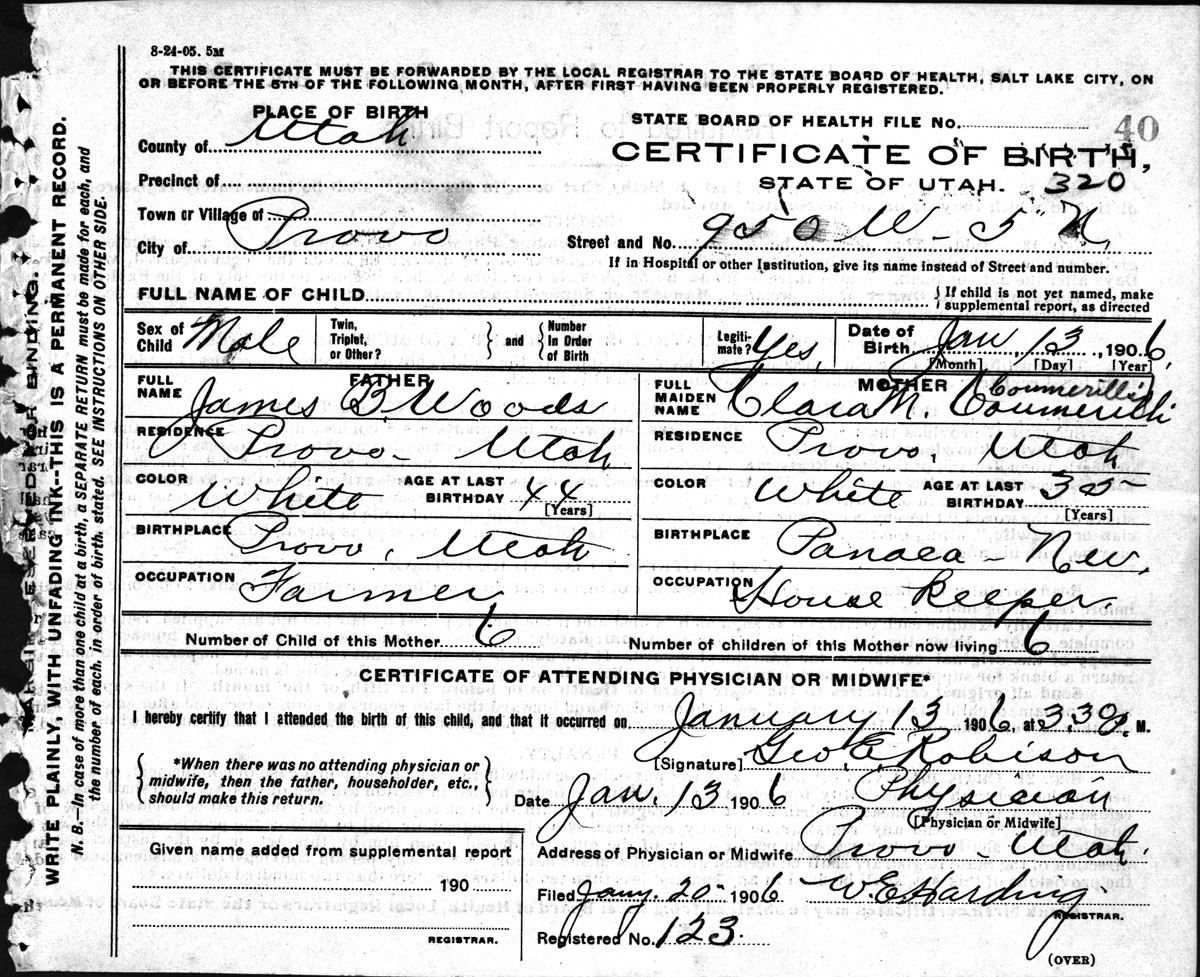 8-24-05. 5M
THIS CERTIFICATE MUST BE FORWARDED BY THE LOCAL REGISTRAR TO THE STATE BOARD OF HEALTH, SALT LAKE CITY, ON
OR BEFORE THE 5TH OF THE FOLLOWING MONTH, AFTER FIRST HAVING BEEN PROPERLY REGISTERED.
PLACE OF BIRTH
County of Utah
Precinct of
Town or Village of
City of Provo
STATE BOARD OF HEALTH FILE No. 40
CERTIFICATE OF BIRTH,
STATE OF UTAH. 320
Street and No. 950 W - 5" N
If in Hospital or other Institution, give its name instead of Street and number.
FULL NAME OF CHILD
If child is not yet named, make
supplemental report, as directed
Sex of Child Male
Twin, Triplet, or Other? and Number In Order of Birth
Legitimate? Yes,
Date of Birth Jan 13, 1906,
[Month] [Day] [Year]
FATHER
FULL NAME James B Woods
RESIDENCE Provo - Utah
COLOR White AGE AT LAST BIRTHDAY 44
[Years]
BIRTHPLACE Provo, Utah
OCCUPATION Farmer
MOTHER
FULL MAIDEN NAME Clara M.
RESIDENCE Provo, Utah
COLOR White AGE AT LAST BIRTHDAY 35
[Years]
BIRTHPLACE Panaca - Nev.
OCCUPATION House Keeper.
Number of Child of this Mother 6
Number of children of this Mother now living 6
CERTIFICATE OF ATTENDING PHYSICIAN OR MIDWIFE*
I hereby certify that I attended the birth of this child, and that it occurred on January 13 1906, at 3.30 P. M.
*When there was no attending physician or
midwife, then the father, householder, etc.,
should make this return.
[Signature] Geo. E. Robison
Date Jan. 13 1906 Physician
[Physician or Midwife]
Given name added from supplemental report
190
REGISTRAR.
Address of Physician or Midwife Provo - Utah.
Filed Jany. 20 - 1906 W. E. Harding
REGISTRAR.
Registered No. 123.
(OVER)
WRITE PLAINLY, WITH UNFADING INK--THIS IS A PERMANENT RECORD.
N. B.—In case of more than one child at a birth, a SEPARATE RETURN must be made for each, and
the number of each, in order of birth, stated. SEE INSTRUCTIONS ON OTHER SIDE.